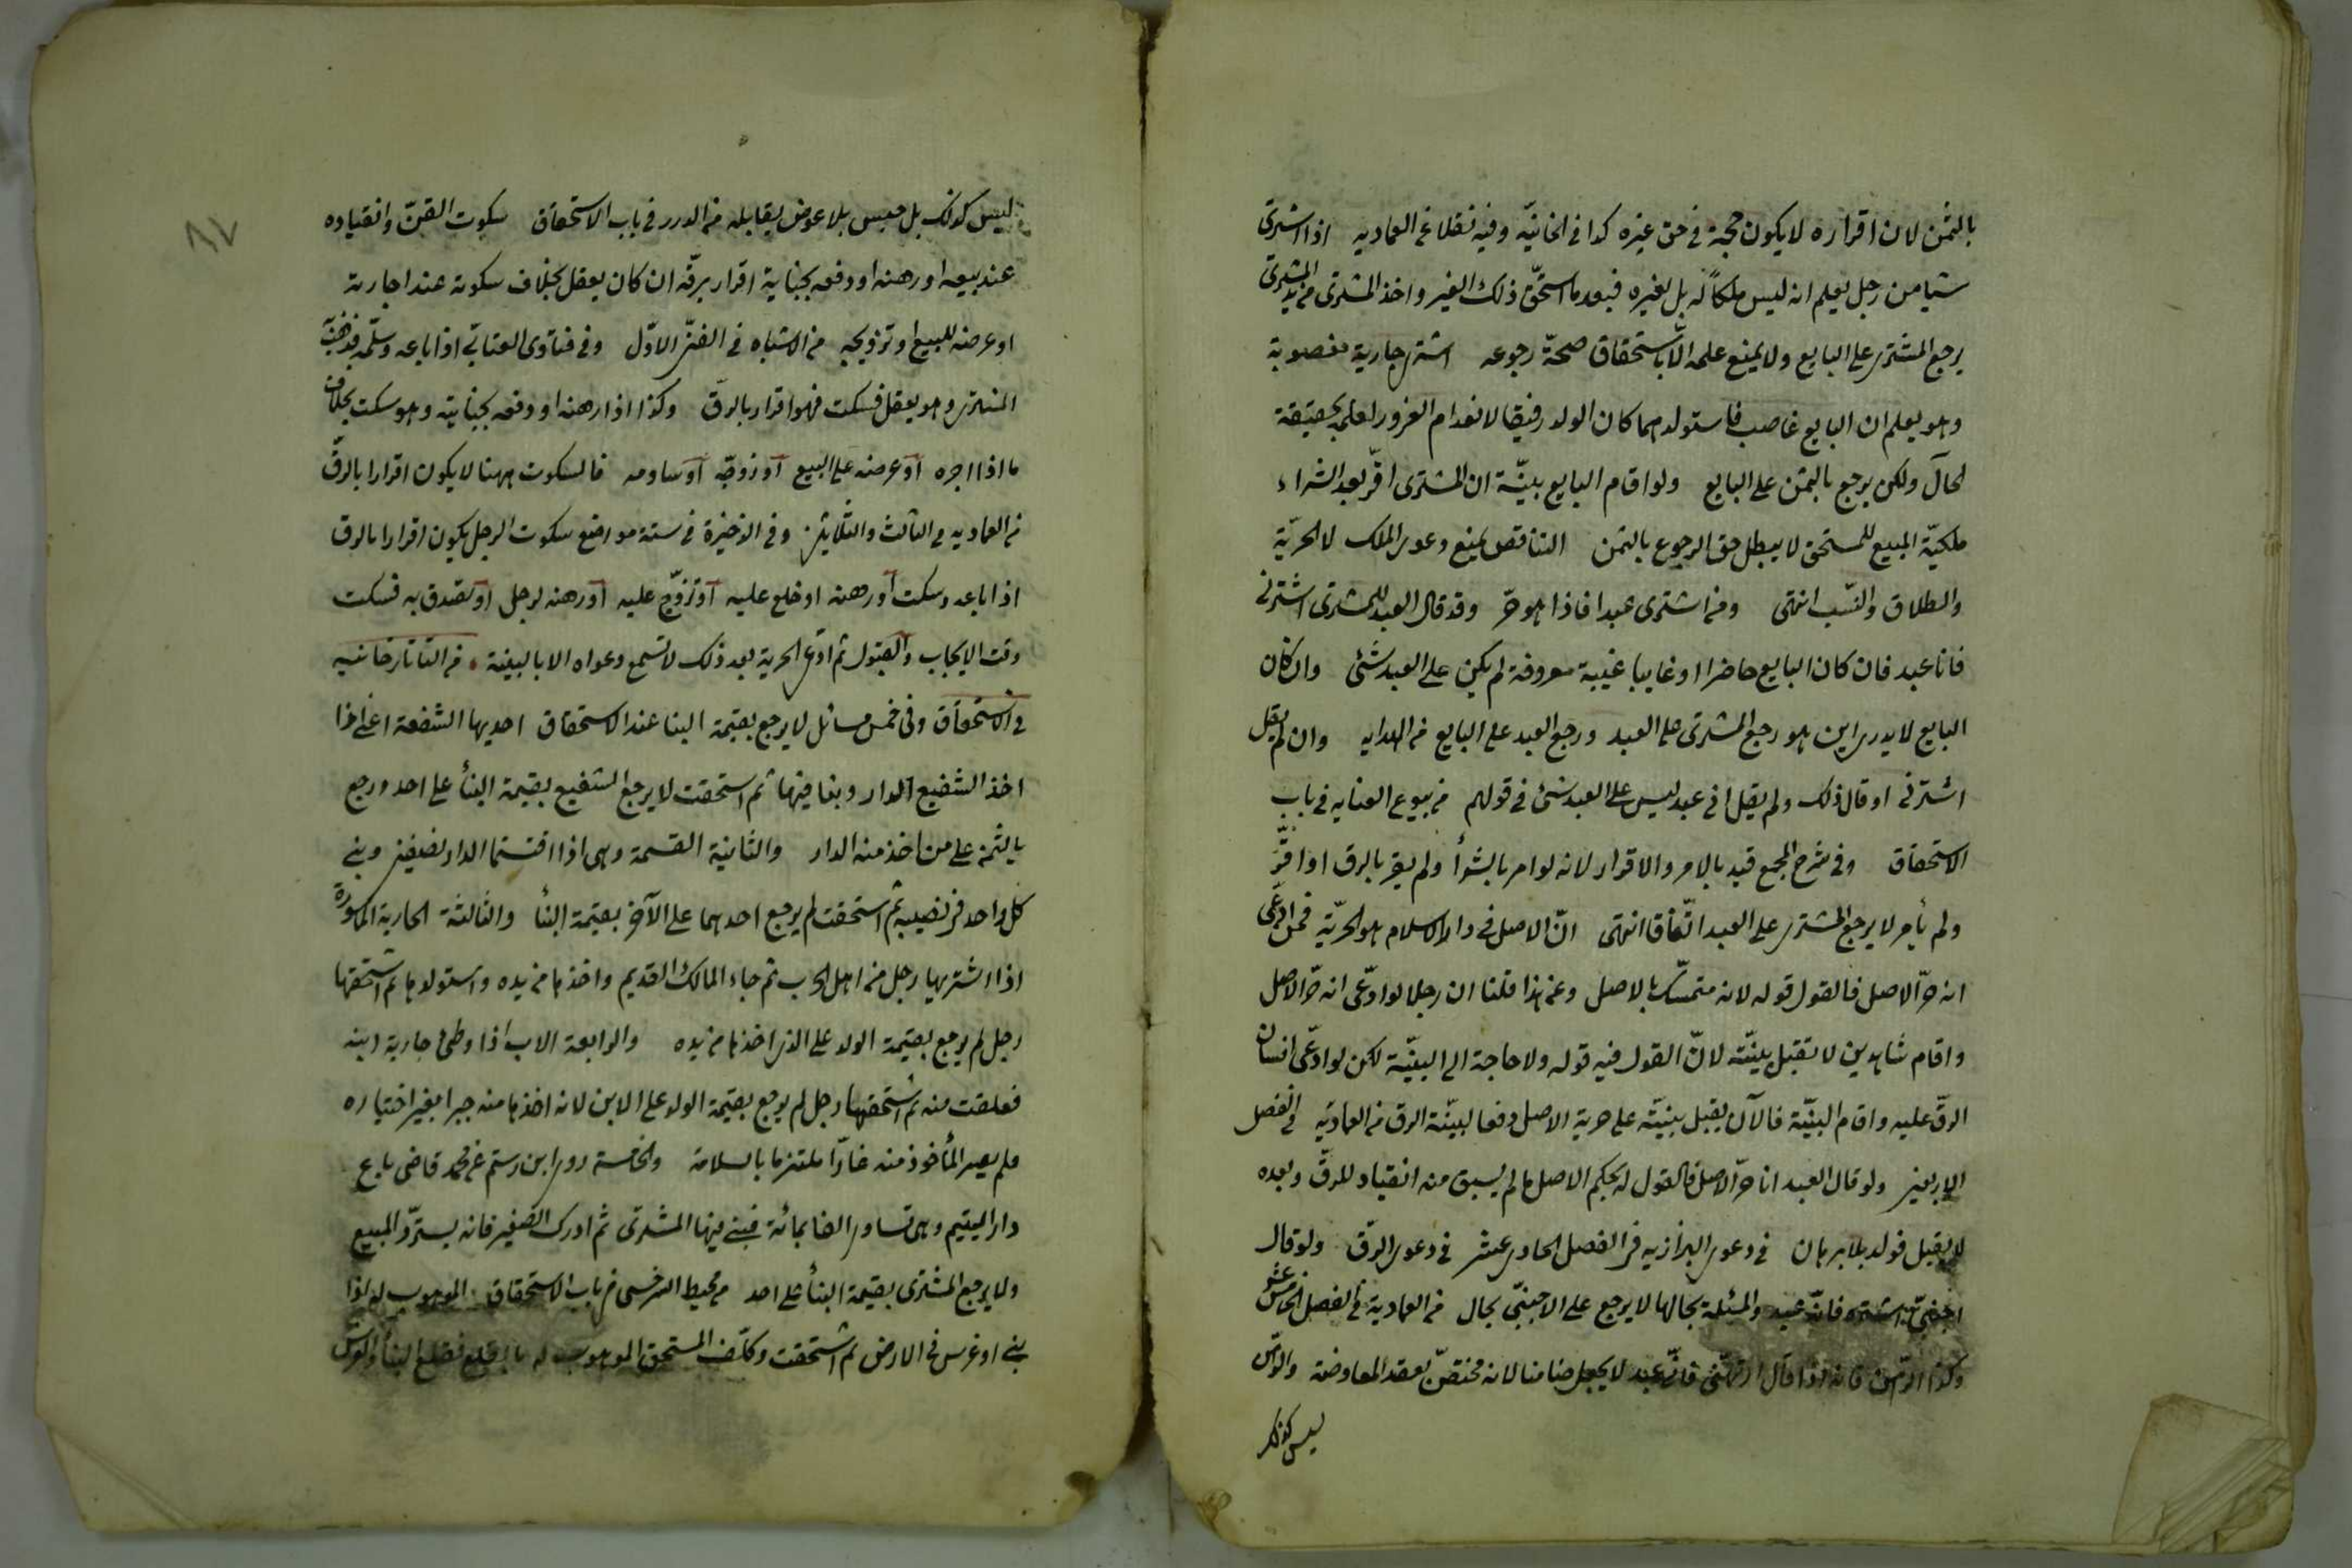 بالثمن لان اقراره لا يكون حجة فى حق غيره كذا فى الخانيّه وفيه نقلا عن العماديه اذا اشترى
شيا من رجل يعلم انه ليس ملكاً له بل لغيره فبعد ما استحقّ ذلك الغير واخذ المشترى من يد المشترى
يرجع المشترى على البايع ولا يمنع علمه الّا باستحقاق صحّة رجوعه اشترى جارية مغصوبة
وهو يعلم ان البايع غاصب فاستولدهما كان الولد رقيقا لانعدام الغرور لعلمه بحقيقة
الحال ولكن يرجع بالثمن على البايع ولو اقام البايع بيّنة ان المشترى اقرّ بعد الشراء
ملكيّة المبيع للمستحق لا يبطل حق الرجوع بالثمن التناقض يمنع دعوى الملك لا الحرّيّة
والطلاق والنسّب انتهى ومن اشترى عبدا فاذا هو حرّ وقد قال العبد للمشترى اشترنى
فانا عبد فان كان البايع حاضرا او غايبا غيبة معروفة لم يكن على العبد شئ وان كان
البايع لا يدرى اين هو رجع المشترى على العبد ورجع العبد على البايع من الهدايه وان لم يقل
اشترنى او قال ذلك ولم يقل انى عبد ليس على العبد شئ فى قولهم من بيوع العنايه فى باب
الاستحقاق وفى شرح المجمع قيد بالامر والاقرار لانه لو امر بالشرأ ولم يقر بالرق او اقرّ
ولم يأمر لا يرجع المشترى على العبد اتّفاقا انتهى انّ الاصل فى دار الاسلام هو الحرّيّة فمن ادّعى
انه حرّ الاصل فالقول قوله لانه متمسّك بالاصل وعن هذا قلنا ان رجلا لو ادّعى انه حرّ الاصل
واقام شاهدين لا تقبل بيّنته لانّ القول فيه قوله ولا حاجة الى البيّنة لكن لو ادّعى انسان
الرقّ عليه واقام البيّنة فالآن يقبل بيّنته على حرية الاصل دفعا لبيّنة الرق من العماديّه فى الفصل
الاربعين ولو قال العبد انا حرّ الاصل فالقول له بحكم الاصل ما لم يسبق منه انقياد للرقّ وبعده
لا يقبل قوله بلا برهان فى دعوى البزازيه فى الفصل الحادى عشر فى دعوى الرقّ ولو قال
اجنبىّ اشتره فانّه عبد والمسئلة بحالها لا يرجع على الاجنبىّ بحال من العمادية فى الفصل الخامس عشر
وكذا الرّهن فانه اذا قال ارتهنّى فانّى عبد لا يجعل ضامنا لانه مختصّ بعقد المعاوضة والرّهن
ليس كذلك
ليس كذلك بل حبس بلا عوض يقابله من الدرر فى باب الاستحقاق سكوت القنّ وانقياده
عند بيعه او رهنه او دفعه بجناية اقرار برقّه ان كان يعقل بخلاف سكوته عند اجارته
او عرضه للبيع او تزويجه من الاشباه فى الفنّ الاوّل وفى فتاوى العتابّى اذا باعه وسلّمه فذهب به
المشترى وهو يعقل فسكت فهو اقرار بالرقّ وكذا اذا رهنه او دفعه بجنايته وهو سكت بخلاف
ما اذا اجره او عرضه على البيع او زوجّه او ساومه فالسكوت ههنا لا يكون اقرارا بالرقّ
من العماديه فى الثالث والثّلاثين وفى الذخيرة فى ستة مواضع سكوت الرجل يكون اقرارا بالرق
اذا باعه وسكت او رهنه او خلع عليه او تزوّج عليه او رهنه لرجل او تصدق به فسكت
وقت الايجاب والقبول ثم ادّعى الحرية بعد ذلك لا تسمع دعواه الا بالبينة . من التاتارخانيه
فى الاستحقاق وفى خمس مسائل لا يرجع بقيمة البنا عند الاستحقاق احديها الشفعة اعنى اذا
اخذ الشفيع الدار وبنا فيها ثم استحقت لا يرجع الشفيع بقيمة البنأ على احد ورجع
بالثمن على من اخذ منه الدار والثانية القسمة وهى اذا اقتسما الدار نصفين وبنى
كل واحد فى نصيبه ثم استحقت لم يرجع احدهما على الآخر بقيمة البنأ والثالثة الجارية المأسورة
اذا اشتريها رجل من اهل الحرب ثم جاء المالك القديم واخذها من يده واستولدها ثم استحقها
رجل لم يرجع بقيمة الولد على الذى اخذها من يده والرابعة الاب اذا وطئ جارية ابنه
فعلقت منه ثم استحقها رجل لم يرجع بقيمة الولد على الابن لانه اخذها منه جبرا بغير اختياره
فلم يصر المأخوذ منه غارّا ملتزما بالسلامة والخامسة روى ابن رستم عن محمد قاضى باع
دار اليتيم وهى تساوى الفا بمائة فبنى فيها المشترى ثم ادرك الصّغير فانه يستردّ المبيع
ولا يرجع المشترى بقيمة البنأ على احد من محيط السرخسى من باب الاستحقاق الموهوب له اذا
بنى او غرس فى الارض ثم استحقت وكلّف المستحق الموهوب له بالقلع فقلع البنأ والغرس